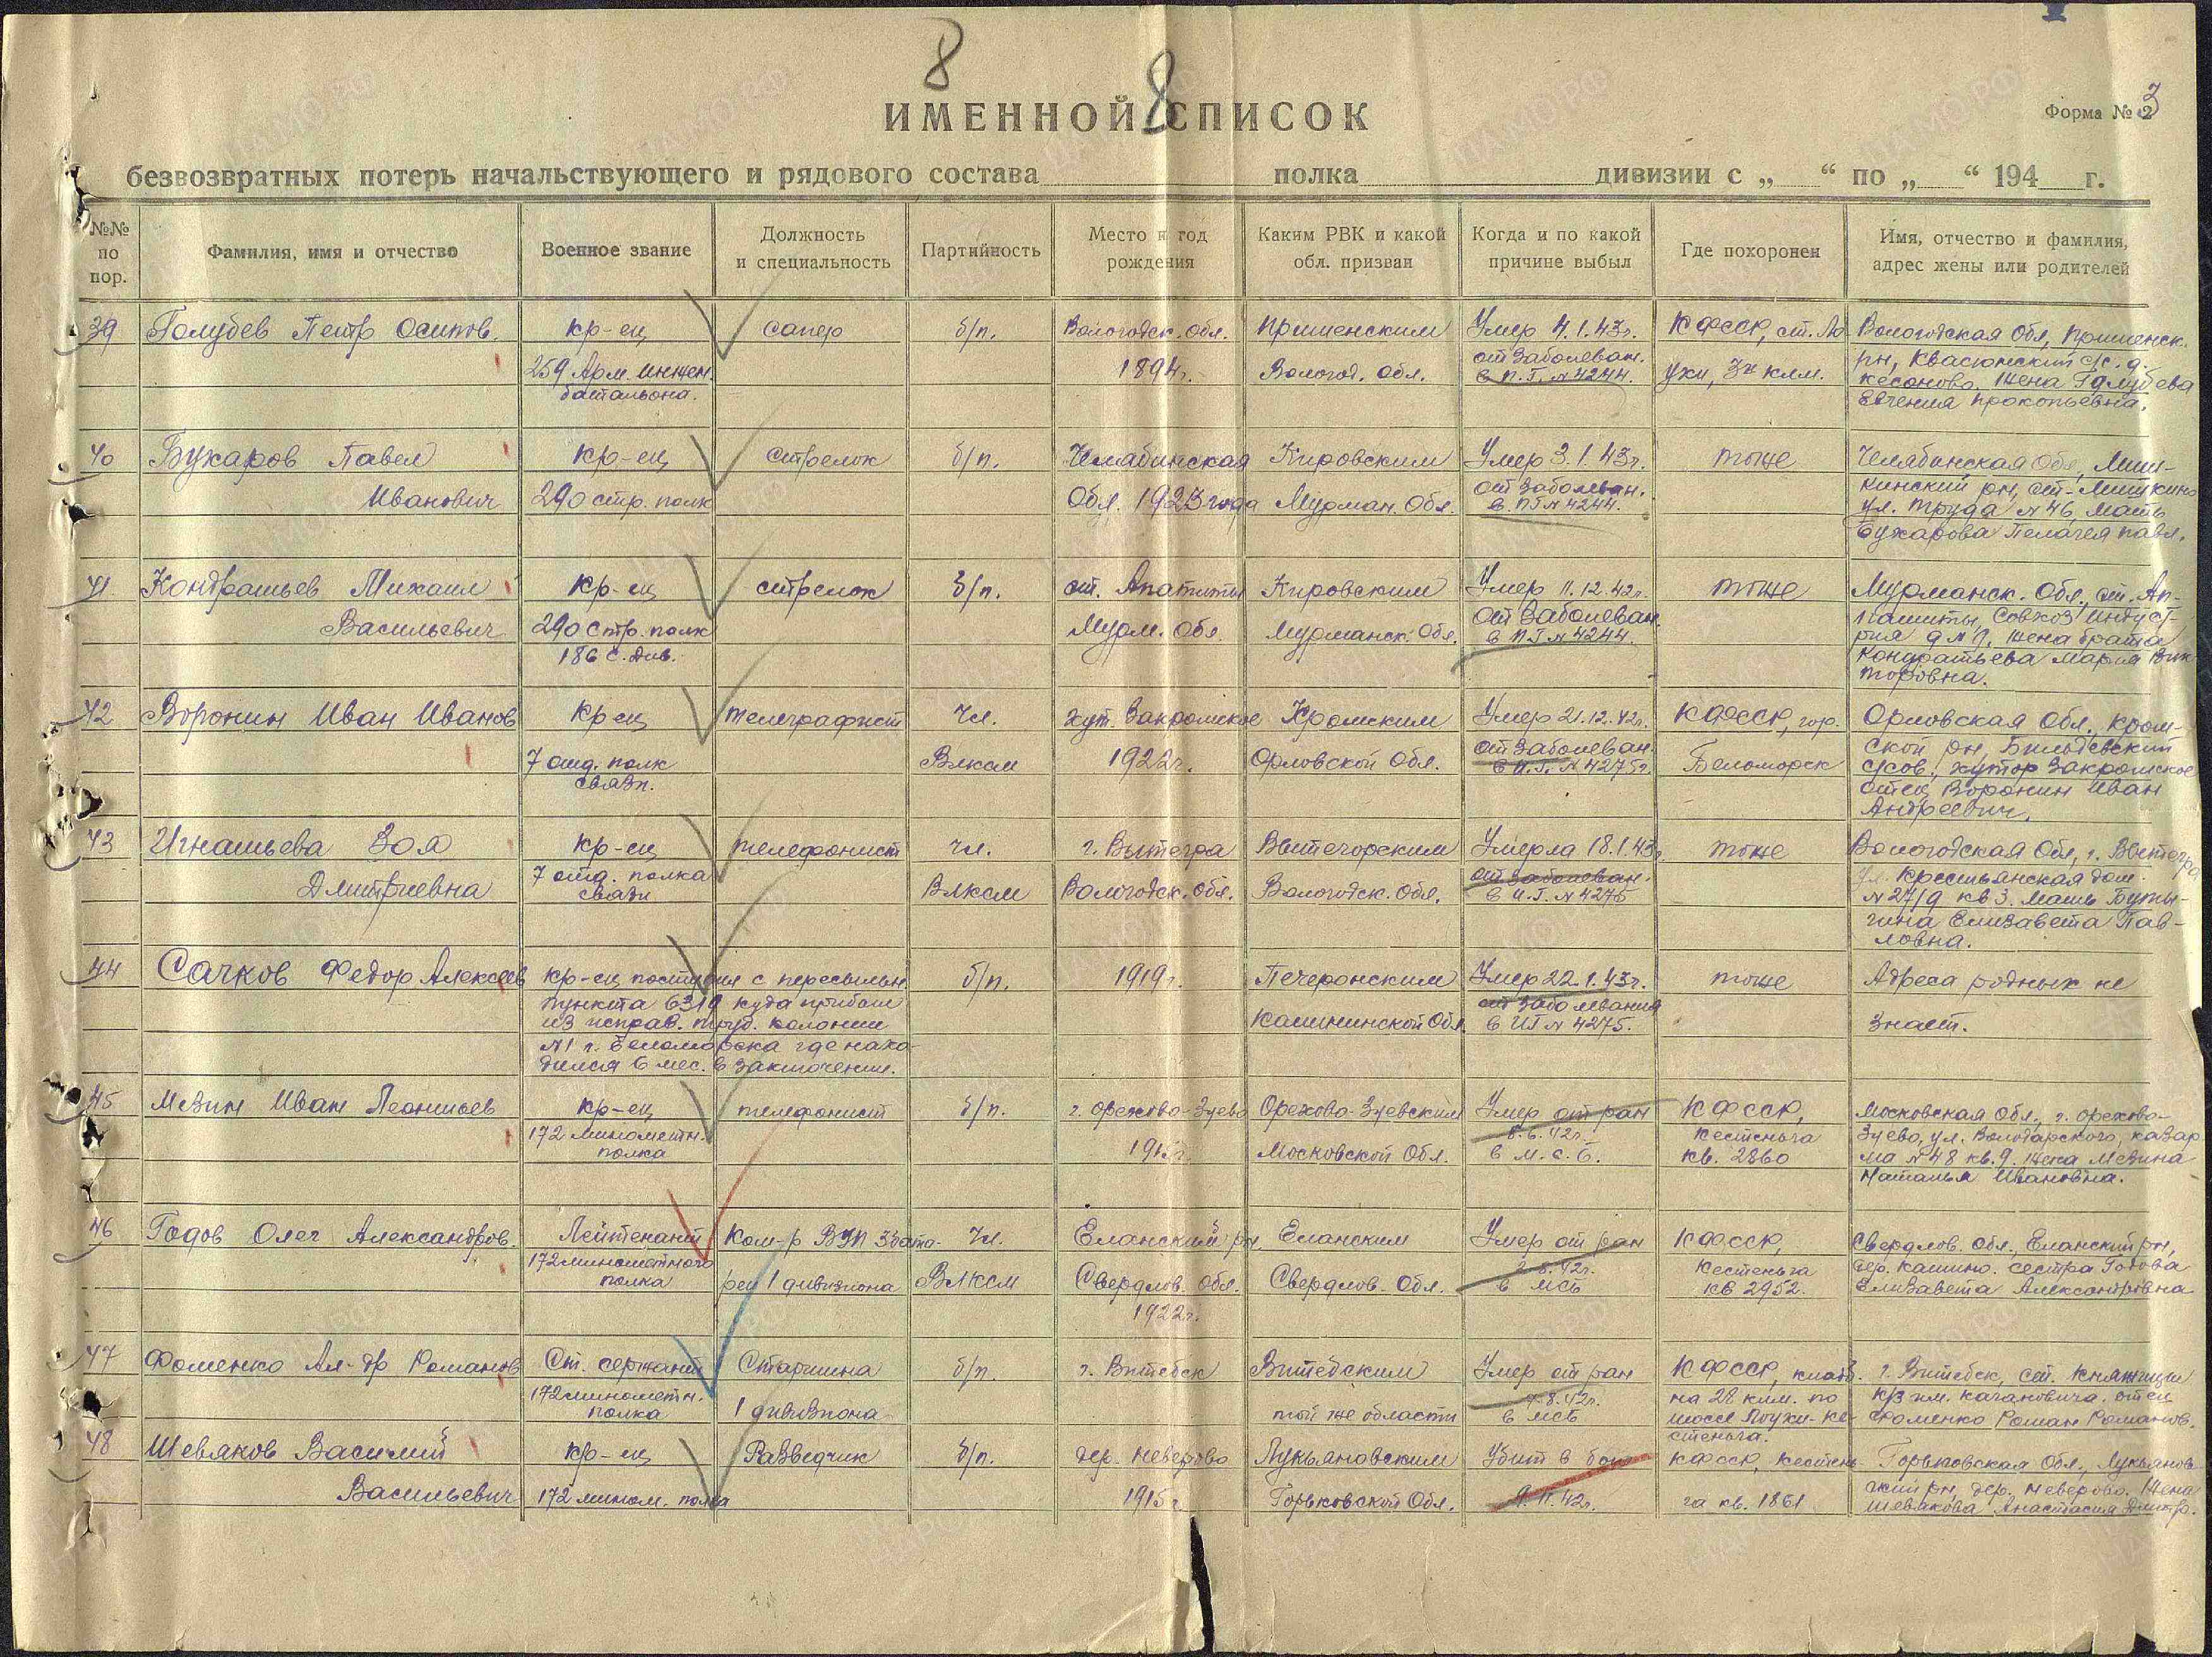 8
8
ИМЕННОЙ СПИСОК
Форма № 2
3
безвозвратных потерь начальствующего и рядового состава полка дивизии с „ “ по „ “ 194 г.
№№ по пор.
Фамилия, имя и отчество
Военное звание
Должность и специальность
Партийность
Место и год рождения
Каким РВК и какой обл. призван
Когда и по какой причине выбыл
Где похоронен
Имя, отчество и фамилия, адрес жены или родителей
39 Голубев Петр Осипов. кр-ец сапер б/п. Вологодск. обл. Пришенским Умер 4.1.43г. КФССР, ст. Ло
259 Арм. инжен. батальона. 1894г. Вологод. обл. от заболеван. в П.Г. №4244. ухи, 34 клм.
Вологодская Обл, Пришенск.
рн, Квасюнский с/с. д.
кесоново. Жена Голубева
Евгения Прокопьевна.
40 Бухаров Павел кр-ец стрелок б/п. Челябинская Кировским Умер 3.1.43г. тоже
Иванович 290 стр. полк Обл. 1923 года Мурман. Обл. от заболеван. в ПГ №4244.
Челябинская Обл, Миш-
кинский рн, ст-Мишкино
ул. Труда №46, мать
Бухарова Пелагея павл.
41 Кондратьев Михаил кр-ец стрелок б/п. ст. Апатиты Кировским Умер 11.12.42г. тоже
Васильевич 290 стр. полк Мурм. Обл. Мурманск. Обл. от заболеван. в ПГ №4244.
186 с. див.
Мурманск. Обл., ст. Ап-
патиты, Совхоз Индуст-
рия д №9, жена брата
Кондратьева Мария Вик-
торовна.
42 Воронин Иван Иванов кр-ец телеграфист Чл. хут. Закромское Кромским Умер 21.12.42г. КФССР, гор.
7 отд. полк связи. Влксм 1922г. Орловской Обл. от заболеван. в И.Г. №4275г. Беломорск
Орловская Обл., кром-
ской рн, Бильдевский
с/сов., хутор Закромское
отец Воронин Иван
Андреевич.
43 Игнатьева Зоя кр-ец телефонист чл. г. Вытегра Вытегорским Умерла 18.1.43г тоже
Дмитриевна 7 отд. полка связи Влксм Вологодск. обл. Вологодск. обл. от заболеван. в И.Г. №4275
Вологодская Обл, г. Вытегра
ул. Крестьянская дом.
№27/9 кв 3. Мать Буты-
гина Елизавета Пав-
ловна.
44 Сачков Федор Алексеев кр-ец поступил с пересыльн б/п. 1919г. Печеронским Умер 22.1.43г. тоже Адреса родных не
пункта 6319 куда прибыл
из исправ. труд. колонии Калининской Обл. от заболевания в ИГ №4275. знает.
№1 г. Беломорска где нахо-
дился 6 мес. в заключении.
45 Мезин Иван Леонтьев кр-ец телефонист б/п. г. орехово-Зуево Орехово-Зуевским Умер от ран КФССР,
172 минометн. полка Московской Обл. 8.6.42г. в м.с.б. Кестеньга кв. 2860
Московская Обл., г. орехово-
Зуево, ул. Володарского, казар
ма №48 кв. 9. Жена Мезина
Наталья Ивановна.
46 Годов Олег Александров. Лейтенант Ком-р ВУП 3 бата- Чл. Еланский рн, Еланским Умер от ран КФССР,
172 минометного полка реи 1 дивизиона ВЛКСМ Свердлов. Обл. Свердлов. Обл. в мсб Кестеньга
1922г. кв 2952.
Свердлов. обл., Еланский рн,
дер. Кашино. сестра Годова
Елизавета Александровна
47 Фоменко Ал-др Романов Ст. сержант Старшина б/п. г. Витебск Витебским Умер от ран КФССР, кладб.
172 минометн. полка 1 дивизиона той же области 8.42г. в мсб на 28 клм. по
шоссе Лоухи-Ке-
стеньга.
г. Витебск, ст. Княжици
к/з им. Качановича. отец
Фоменко Роман Романов.
48 Шевяков Василий кр-ец Разведчик б/п. дер. Неверово Лукьяновским Убит в бою КФССР, Кестень-
Васильевич 172 мином. полка 1915г Горьковской Обл. 9.11.42г. га кв. 1861
Горьковская Обл., Лукьянов-
ский рн, дер. Неверово. Жена
Шевякова Анастасия Дмитр.